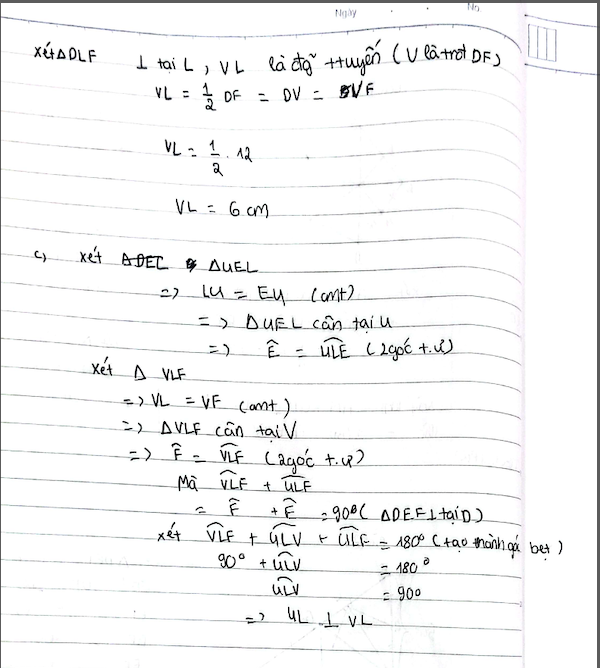 Ngày No
xétΔDLF ⊥ tại L, VL là đg̃ ttuyến (V là trđ DF)
VL = 1/2 DF = DV = VF
VL = 1/2 . 12
VL = 6 cm
c, xét ΔDEC ΔUEL
=> LU = EU (cmt)
=> ΔUEL cân tại U
=> Ê = ULE (2góc t.ư)
xét Δ VLF
=> VL = VF (cmt)
=> ΔVLF cân tại V
=> F̂ = VLF (2góc t.ư)
Mà VLF + ULF
= F̂ + Ê = 90⁰ ( ΔDEF⊥tại D)
xét VLF + ULV + ULF = 180⁰ (tạo thành góc bẹt)
90⁰ + ULV = 180⁰
ULV = 90⁰
=> UL ⊥ VL